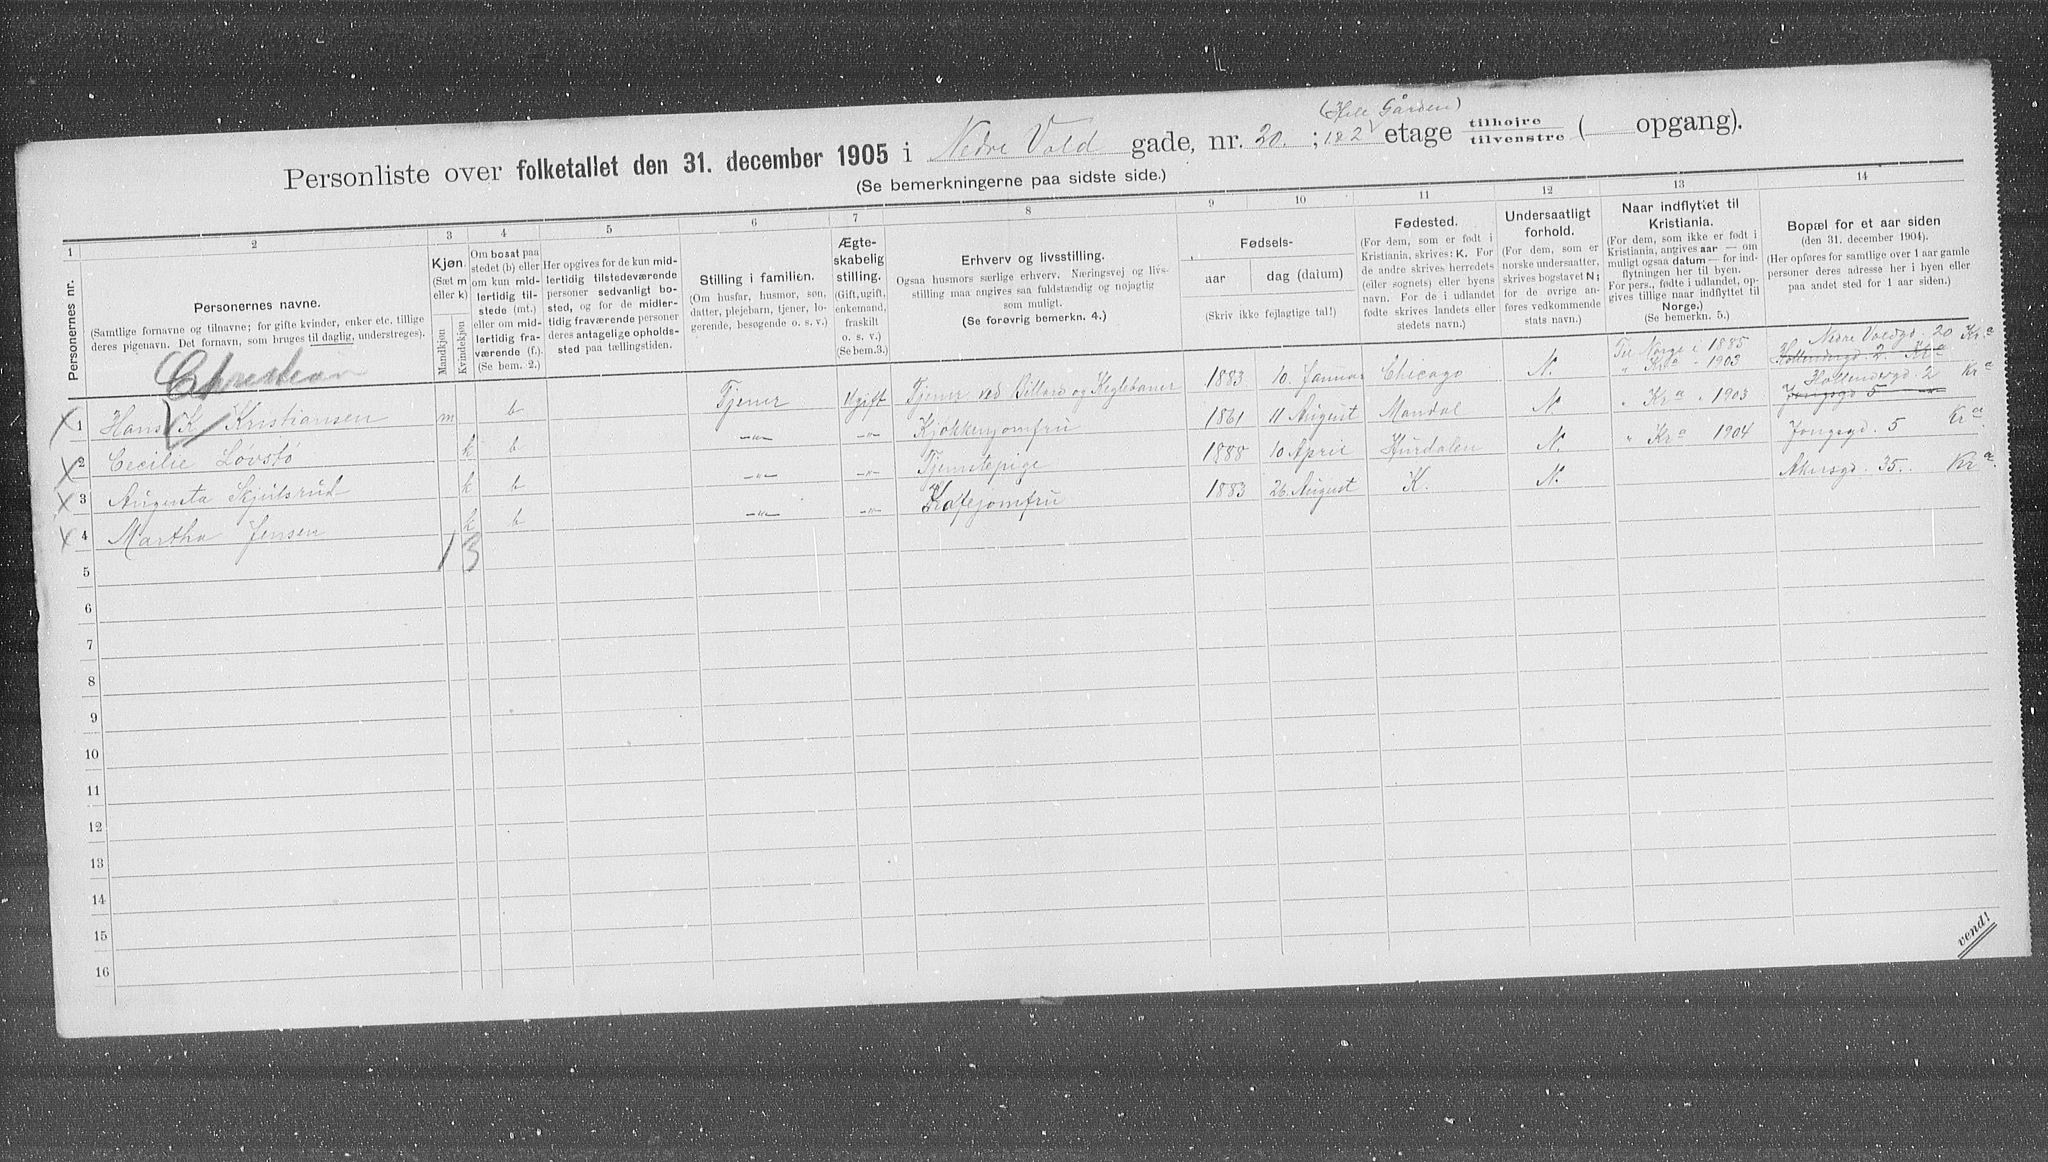 (Hele Gården)
Personliste over folketallet den 31. december 1905 i Nedre Vold gade, nr. 20. ; 1 & 2 etage tilhøjre tilvenstre ( opgang).
(Se bemerkningerne paa sidste side.)
1 2 3 4 5 6 7 8 9 10 11 12 13 14
Personernes nr.
Personernes navne.
(Samtlige fornavne og tilnavne; for gifte kvinder, enker etc. tillige
deres pigenavn. Det fornavn, som bruges til daglig, understreges).
Kjøn
(Sæt m
eller k)
Mandkjøn
Kvindekjøn
Om bosat paa
stedet (b) eller
om kun mid-
lertidig til-
stede (mt.)
eller om mid-
lertidig fra-
værende (f.).
(Se bem. 2.)
Her opgives for de kun mid-
lertidig tilstedeværende
personer sedvanligt bo-
sted, og for de midler-
tidig fraværende personer
deres antagelige opholds-
sted paa tællingstiden.
Stilling i familien.
(Om husfar, husmor, søn,
datter, plejebarn, tjener, lo-
gerende, besøgende o. s. v.)
Ægte-
skabelig
stilling.
(Gift, ugift,
enkemand,
fraskilt
o. s. v.)
(Se bem.3.)
Erhverv og livsstilling.
Ogsaa husmors særlige erhverv. Næringsvej og livs-
stilling maa angives saa fuldstændig og nøjagtig
som muligt.
(Se forøvrig bemerkn. 4.)
Fødsels-
aar dag (datum)
(Skriv ikke fejlagtige tal!)
Fødested.
(For dem, som er født i
Kristiania, skrives: K. For
de andre skrives herredets
(eller sognets) eller byens
navn. For de i udlandet
fødte skrives landets eller
stedets navn.)
Undersaatligt
forhold.
(For dem, som er
norske undersaatter,
skrives bogstavet N;
for de øvrige an-
føres vedkommende
stats navn.)
Naar indflyttet til
Kristiania.
(For dem, som ikke er født i
Kristiania, angives aar — om
muligt ogsaa datum — for ind-
flytningen her til byen.
For pers., fødte i udlandet, op-
gives tillige naar indflyttet til
Norge.)
(Se bemerkn. 5.)
Bopæl for et aar siden
(den 31. december 1904).
(Her opføres for samtlige over 1 aar gamle
personer deres adresse her i byen eller
paa andet sted for 1 aar siden.)
Christian
Til Norge i 1885 Nedre Voldgd. 20 Kr.a
X 1 Hans K Kristiansen m b Tjener Ugift Tjener ved Billard og Keglebaner 1883 10. Januar Chicago N. " Kr.a - 1903 Hollendergd. 2. Kr.a
X 2 Cecilie Lovstø k b —"— —"— Kjøkkenjomfru 1861 11 August Mandal N " Kr.a " 1903 Jongsgd 5 Hollendergd. 2 Kr.a
X 3 Augusta Skjulsrud k b —"— —"— Tjenstepige 1888 10 April Hurdalen N. " Kr.a 1904 Jongsgd. 5 Kr.a
X 4 Martha Jensen k b —"— —"— Kafejomfru 1883 26. August K. N. Akersgd. 35. Kr.a
1 3
5
6
7
8
9
10
11
12
13
14
15
16
vend!